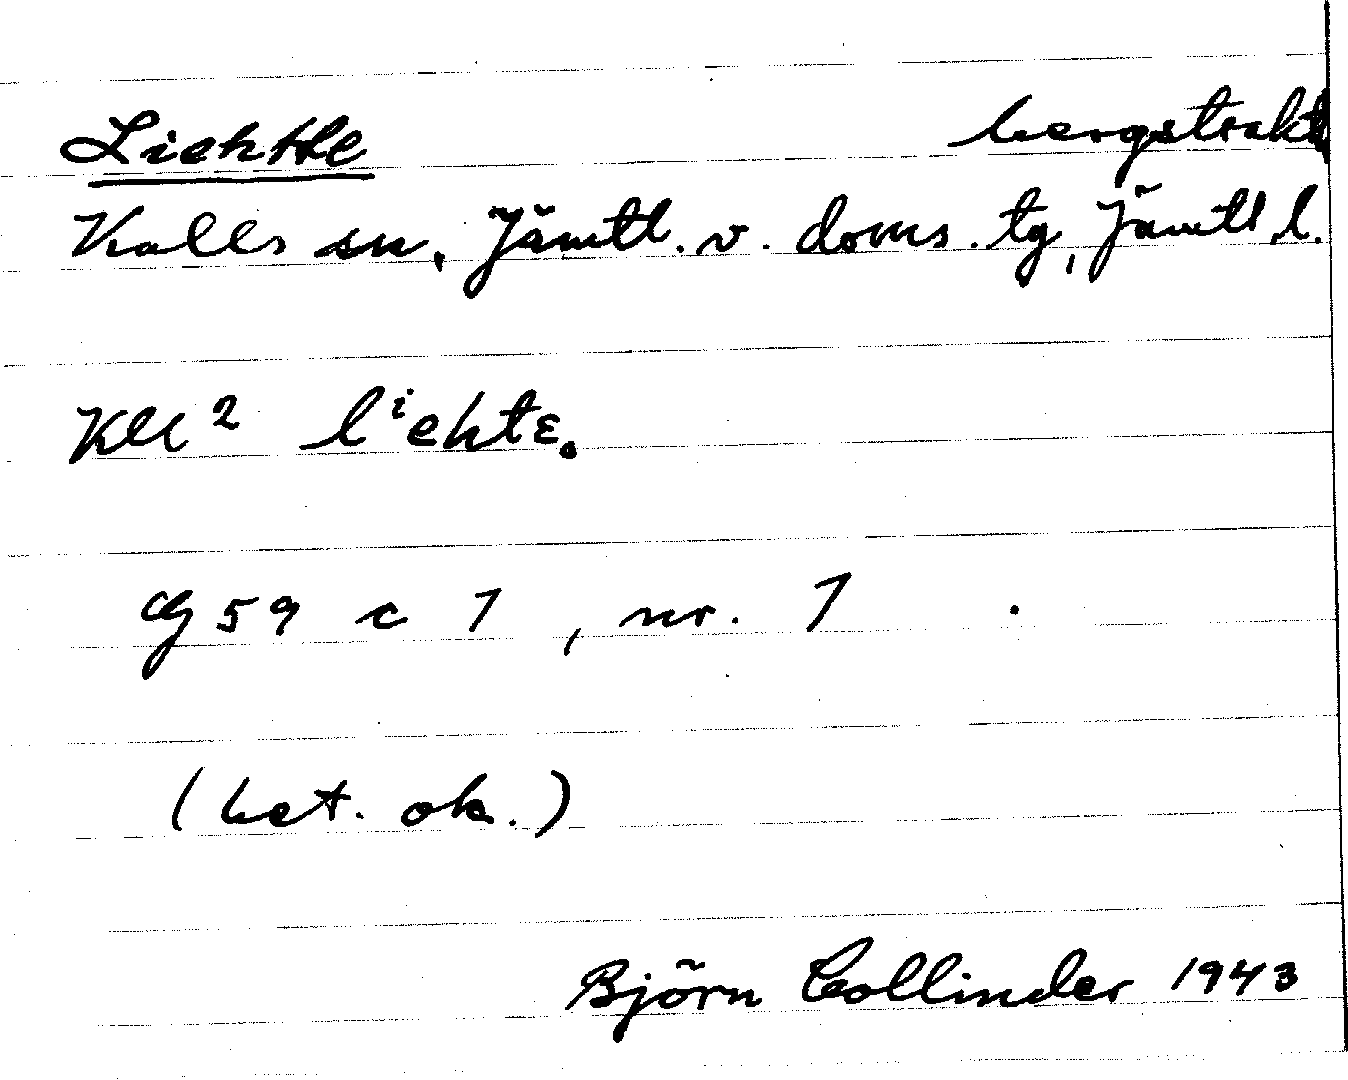 Liehtte bergstrakt
Kalls sn, Jämtl. v. doms. tg, Jämtl. l.
Kll² lⁱehtɛ.
G 59 c 7, nr. 7 .
(bet. ok.)
Björn Collinder 1943